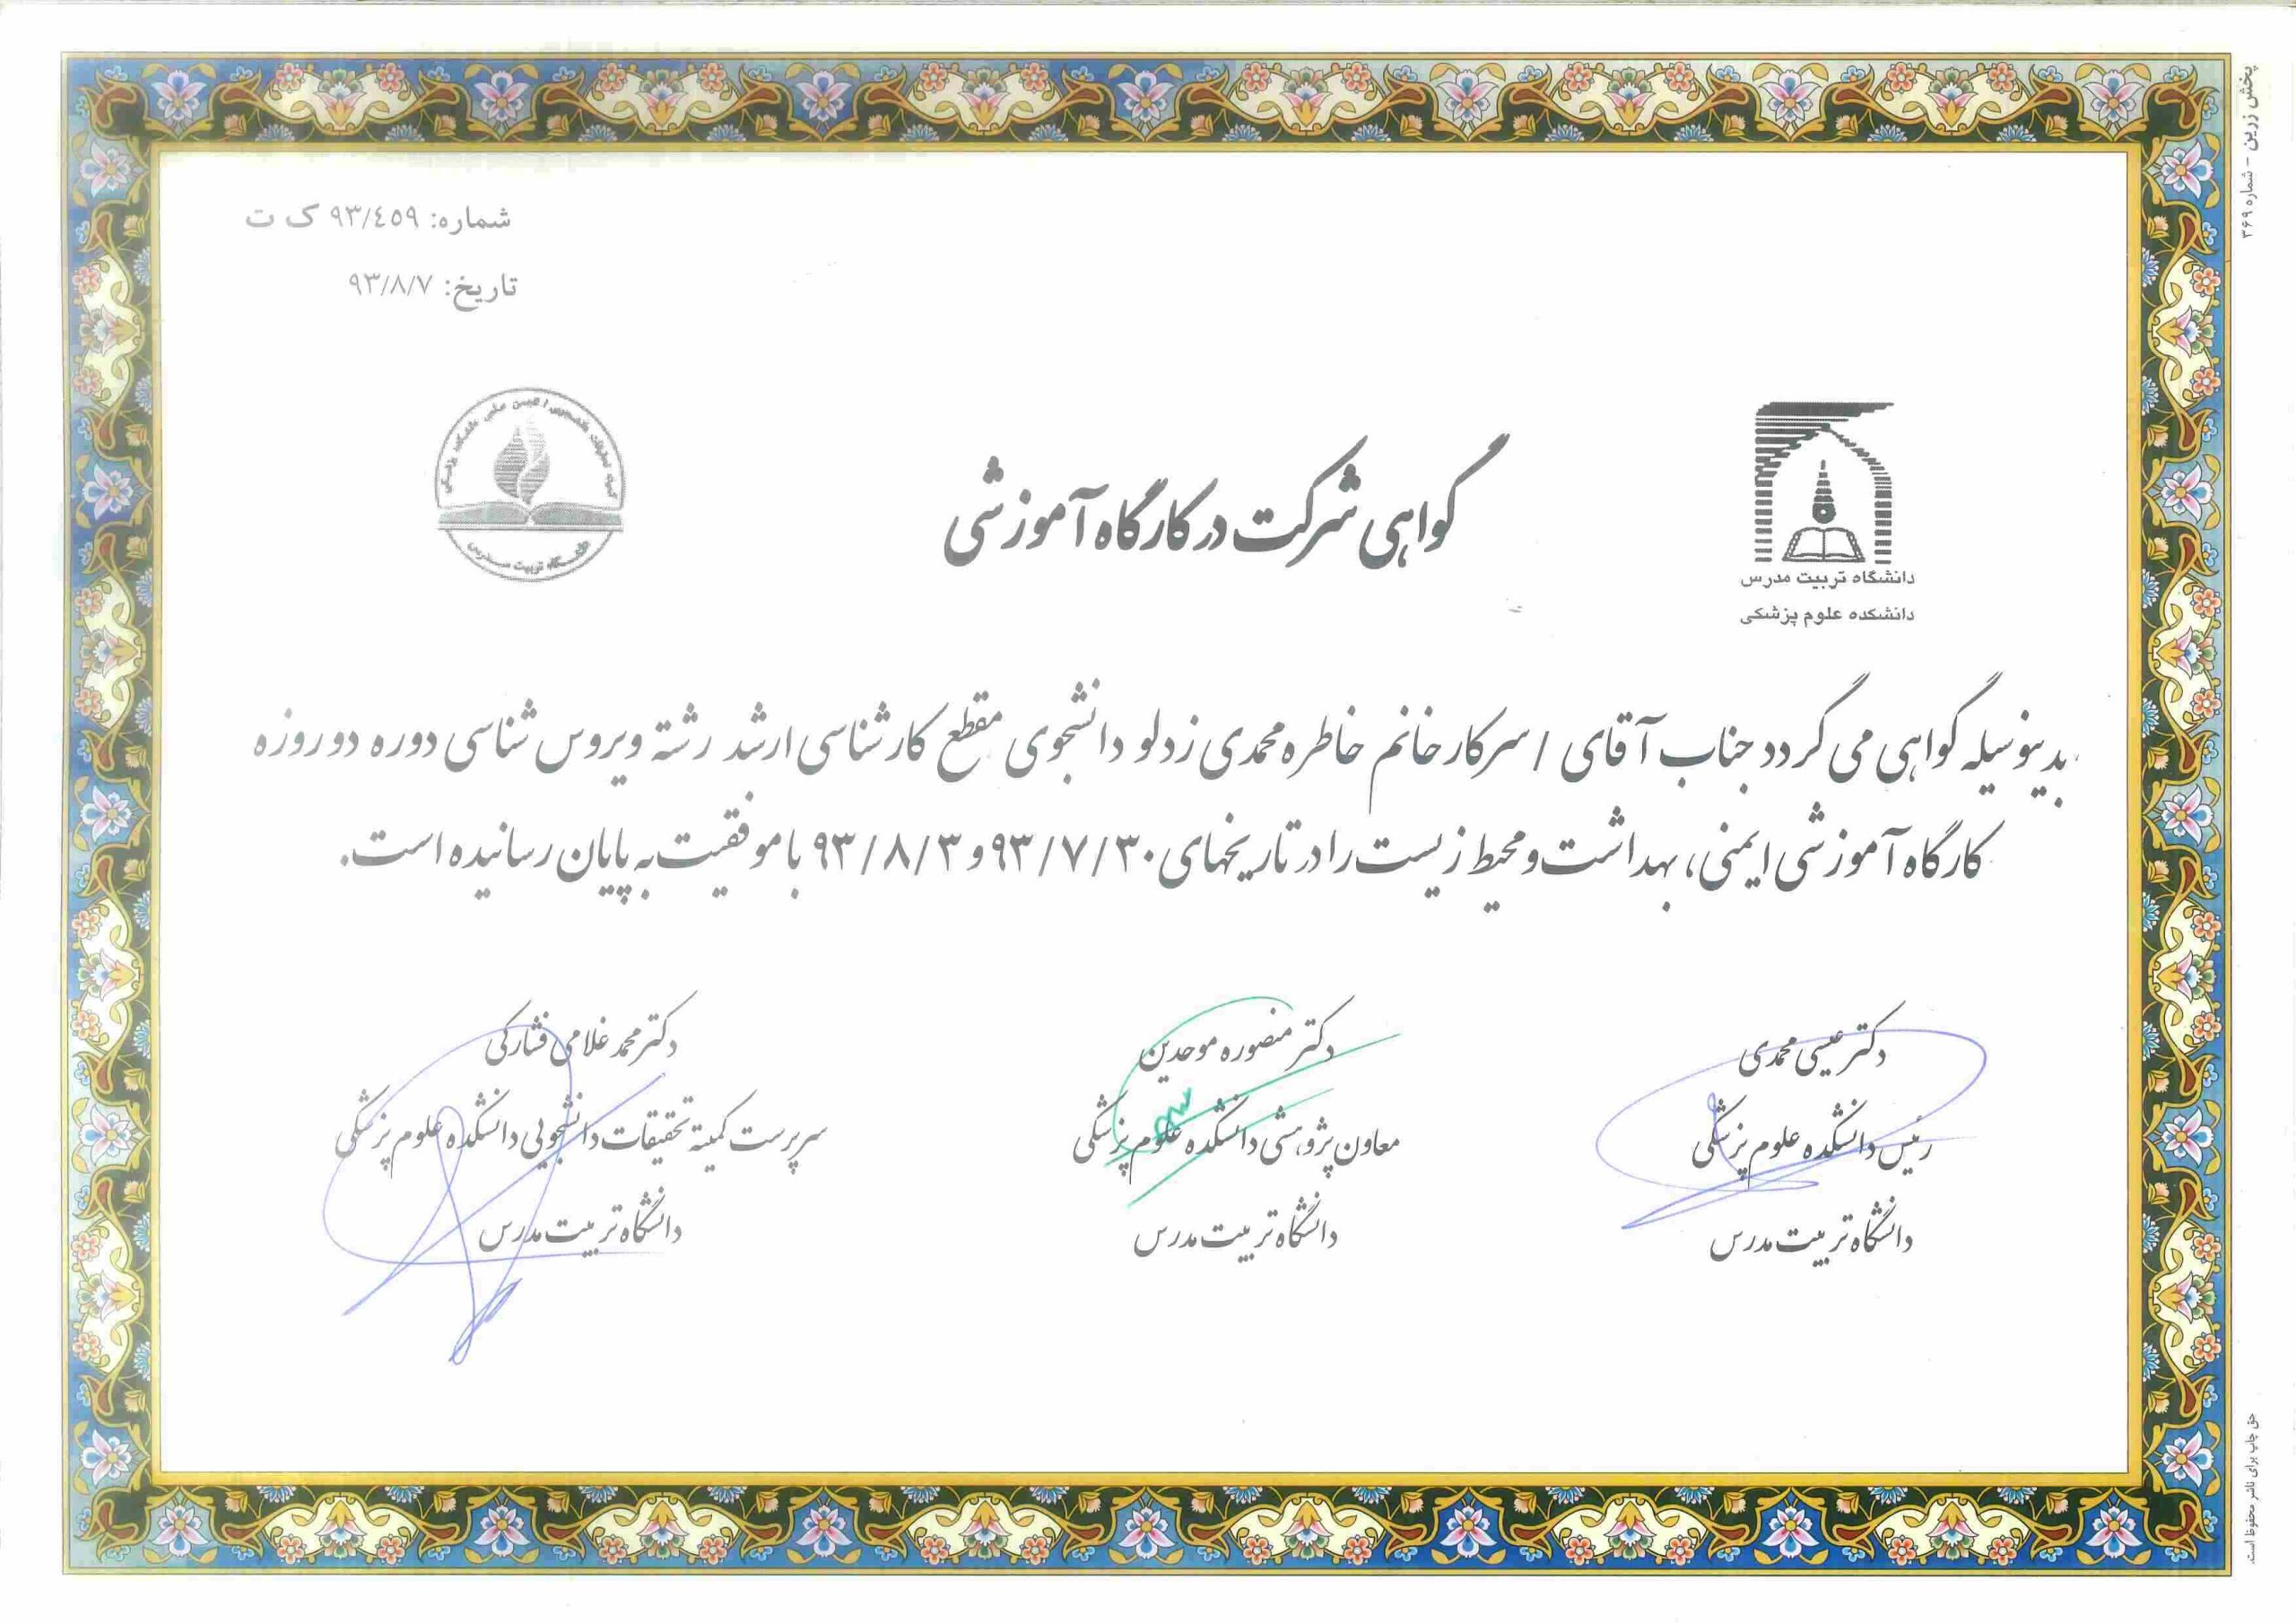 شماره: ۹۳/٤٥۹ ک ت
تاریخ: ۹۳/۸/۷
دانشگاه تربیت مدرس
دانشکده علوم پزشکی
گواهی شرکت در کارگاه آموزشی
بدینوسیله گواهی می گردد جناب آقای / سرکار خانم خاطره محمدی زدلو دانشجوی مقطع کارشناسی ارشد رشته ویروس شناسی دوره دو روزه
کارگاه آموزشی ایمنی، بهداشت و محیط زیست را در تاریخهای ۹۳/۷/۳۰ و ۹۳/۸/۳ با موفقیت به پایان رسانیده است.
دکتر عیسی محمدی
رئیس دانشکده علوم پزشکی
دانشگاه تربیت مدرس
دکتر منصوره موحدین
معاون پژوهشی دانشکده علوم پزشکی
دانشگاه تربیت مدرس
دکتر محمد غلامی فشارکی
سرپرست کمیته تحقیقات دانشجویی دانشکده علوم پزشکی
دانشگاه تربیت مدرس
پخش زرین - شماره ۳۶۹
حق چاپ برای ناشر محفوظ است.